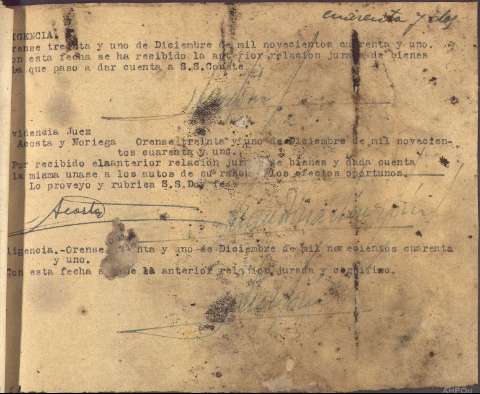 cuarenta y dos
IGENCIA.
rense treinta y uno de Diciembre de mil novecientos cuarenta y uno.
on esta fecha se ha recibido la anterior relación jurada de bienes
que paso a dar cuenta a S.S. Conste.
videndia Juez
Acosta y Noriega Orense treinta y uno de Diciembre de mil novecien-
tos cuarenta y uno.
Por recibido elaanterior relación de bienes y dada cuenta
la misma unase a los autos de su razon los efectos oportunos.
Lo proveyo y rubrica S.S. Doy fe
Acosta
ligencia.-Orense y uno de Diciembre de mil novecientos cuarenta
y uno.
Con esta fecha la anterior relacion jurada y certifico.
AHPOu